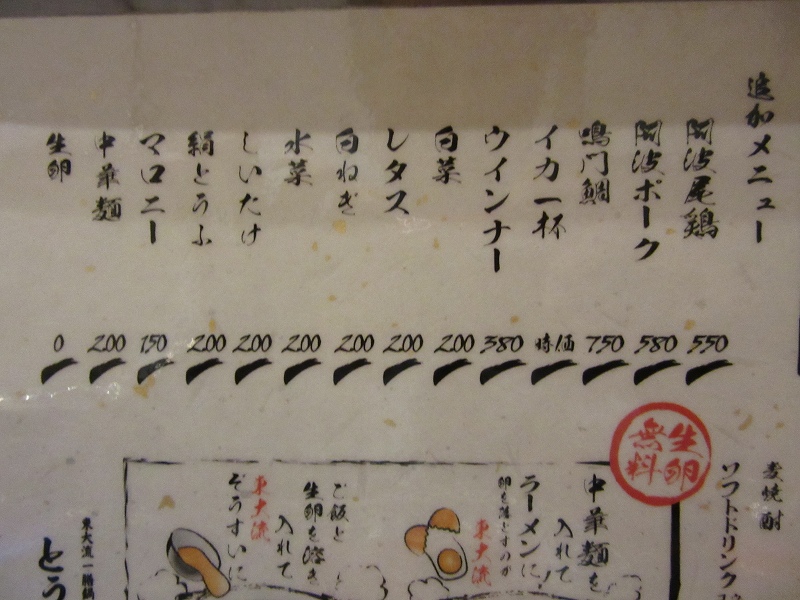 追加メニュー
阿波尾鶏 550
阿波ポーク 580
鳴門鯛 750
イカ一杯 時価
ウインナー 380
白菜 200
レタス 200
白ねぎ 200
水菜 200
しいたけ 200
絹とうふ 200
マロニー 150
中華麺 200
生卵 0
麦焼酎
ソフトドリンク
生卵
無料
中華麺を
入れて
ラーメンに!
卵を落とすのが
東大流
ご飯と
生卵を溶き
入れて
東大流
ぞうすいに
東大流一膳鍋
とう